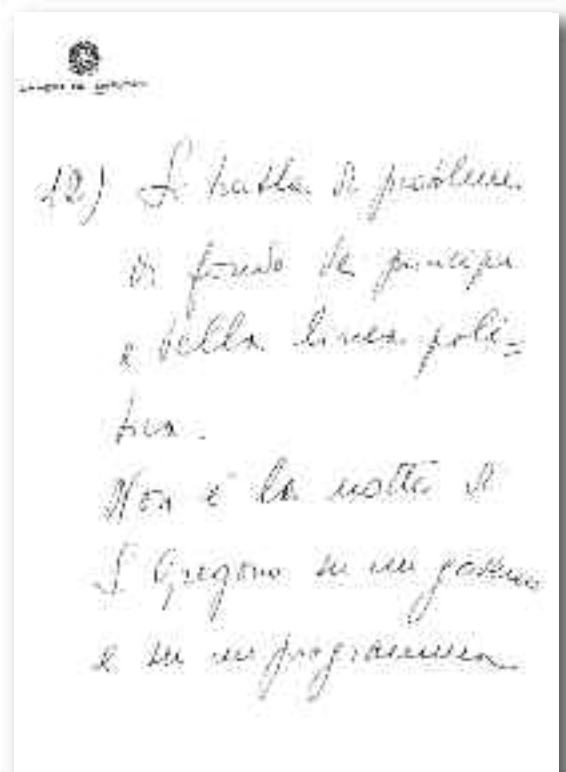 CAMERA DEI DEPUTATI
12) Si tratta di problemi
di fondo dei principi
e della linea poli=
tica.
Non è la notte di
S. Gregorio su un
e su un programma